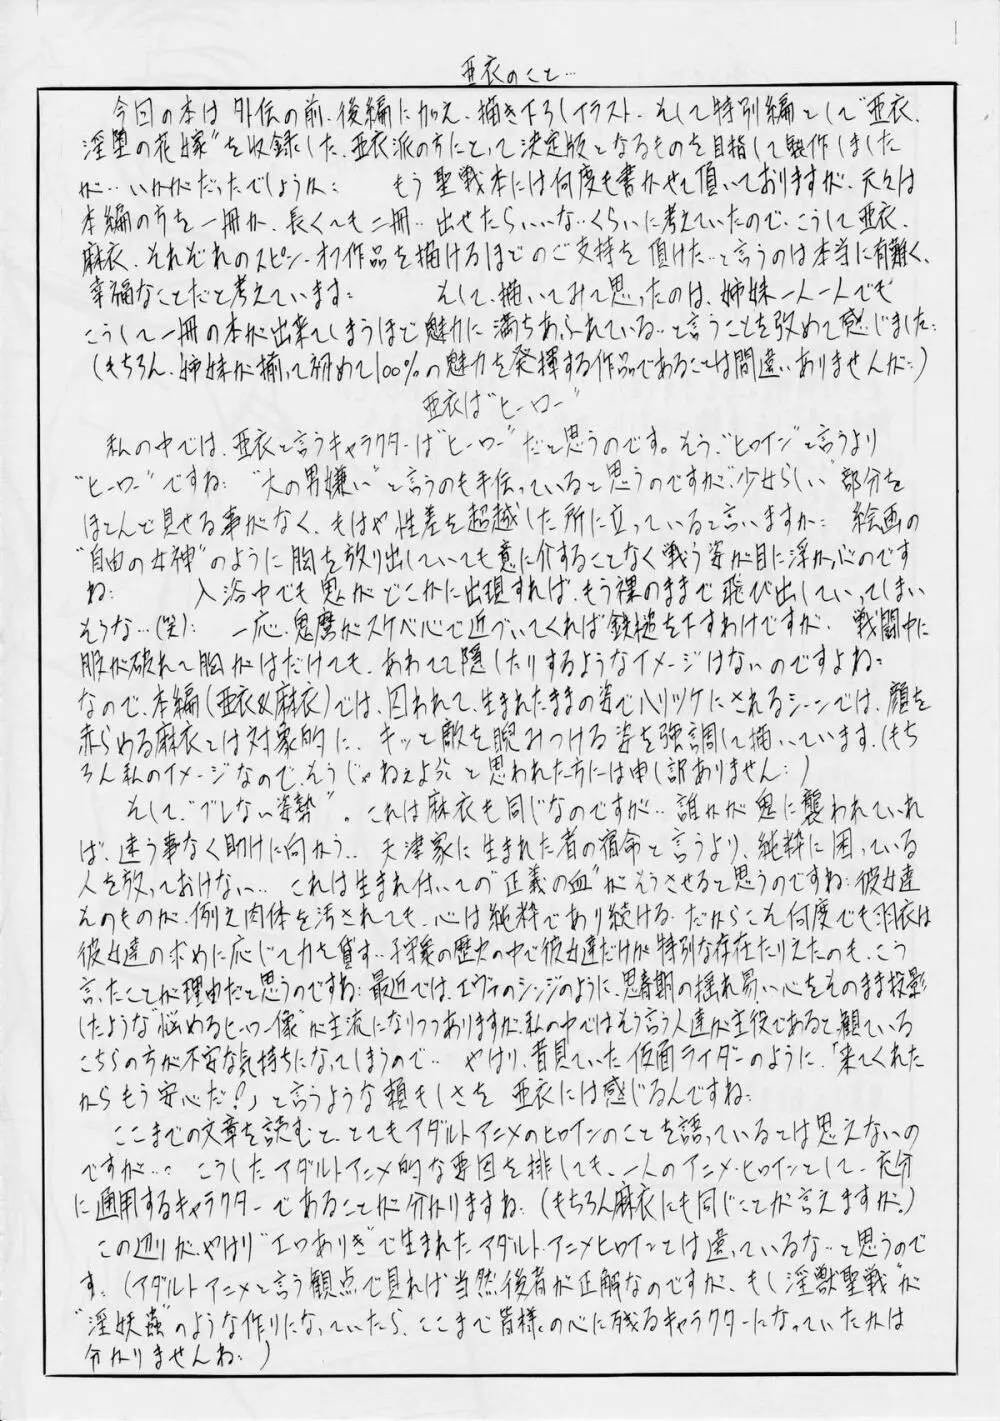 亜衣のこと…
今回の本は外伝の前、後編に加え、描き下ろしイラスト、そして特別編として"亜衣、
淫堕の花嫁"を収録した、亜衣派の方にとって決定版となるものを目指して製作しました
が…いかがだったでしょうか… もう聖戦本には何度も書かせて頂いておりますが、元々は
本編の方を一冊か、長くても二冊…出せたらいいな…くらいに考えていたので、こうして亜衣、
麻衣、それぞれのスピン・オフ作品を描けるほどのご支持を頂けた…と言うのは本当に有難く、
幸福なことだと考えています… そして、描いてみて思ったのは、姉妹一人一人でも
こうして一冊の本が出来てしまうほど魅力に満ちあふれている…と言うことを改めて感じました…
(もちろん、姉妹が揃って初めて100%の魅力を発揮する作品であることは間違いありませんが…)
亜衣は"ヒーロー"
私の中では、亜衣と言うキャラクターは"ヒーロー"だと思うのです。もう、"ヒロイン"と言うより
"ヒーロー"ですね… "大の男嫌い"と言うのも手伝っていると思うのですが、"少女らしい"部分を
ほとんど見せる事がなく、もはや性差を超越した所に立っていると言いますか… 絵画の
"自由の女神"のように胸を放り出していても意に介することなく戦う姿が目に浮かぶのです
ね… 入浴中でも鬼がどこかに出現すれば、もう裸のままで飛び出していってしまい
そうな…(笑)… 一応、鬼麿がスケベ心で近づいてくれば鉄槌を下すわけですが、戦闘中に
服が破れて胸がはだけても、あわてて隠したりするようなイメージはないのですよね…
なので、本編(亜衣&麻衣)では、囚われて、生まれたままの姿でハリツケにされるシーンでは、顔を
赤らめる麻衣とは対象的に、キッと敵を睨みつける姿を強調して描いています、(もち
ろん私のイメージなので、そうじゃねぇよ と思われた方には申し訳ありません…)
そして、"ブレない姿勢"。これは麻衣も同じなのですが…誰かが鬼に襲われていれ
ば、迷う事なく助けに向かう… 天津家に生まれた者の宿命と言うより、純粋に困っている
人を放っておけない… これは生まれ付いての"正義の血"がそうさせると思うのですね…彼女達
そのものが、例え肉体を汚されても、心は純粋であり続ける…だからこそ何度でも羽衣は
彼女達の求めに応じて力を貸す…子守衆の歴史の中で彼女達だけが特別な存在たりえたのも、こう
言ったことが理由だと思うのですね…最近では、エヴァのシンジのように、思春期の揺れ易い心をそのまま投影
したような"悩めるヒーロー像"が主流になりつつありますが、私の中ではそう言う人達が主役であると、観ている
こちらの方が不安な気持ちになってしまうので… やはり、昔見ていた仮面ライダーのように、「来てくれた
からもう安心だ!」と言うような頼もしさを 亜衣には感じるんですね…
ここまでの文章を読むと、とてもアダルトアニメのヒロインのことを語っているとは思えないの
ですが…。 こうしたアダルトアニメ的な要因を排しても、一人のアニメ・ヒロインとして、充分
に通用するキャラクターであることが分かりますね…(もちろん麻衣にも同じことが言えますが。)
この辺りが、やはり"エロありき"で生まれたアダルト・アニメヒロインとは違っているな…と思うので
す…(アダルトアニメと言う観点で見れば当然後者が正解なのですが、もし"淫獣聖戦"が
"淫妖蟲"のような作りになっていたら、ここまで皆様の心に残るキャラクターになっていたかは
分かりませんね…)